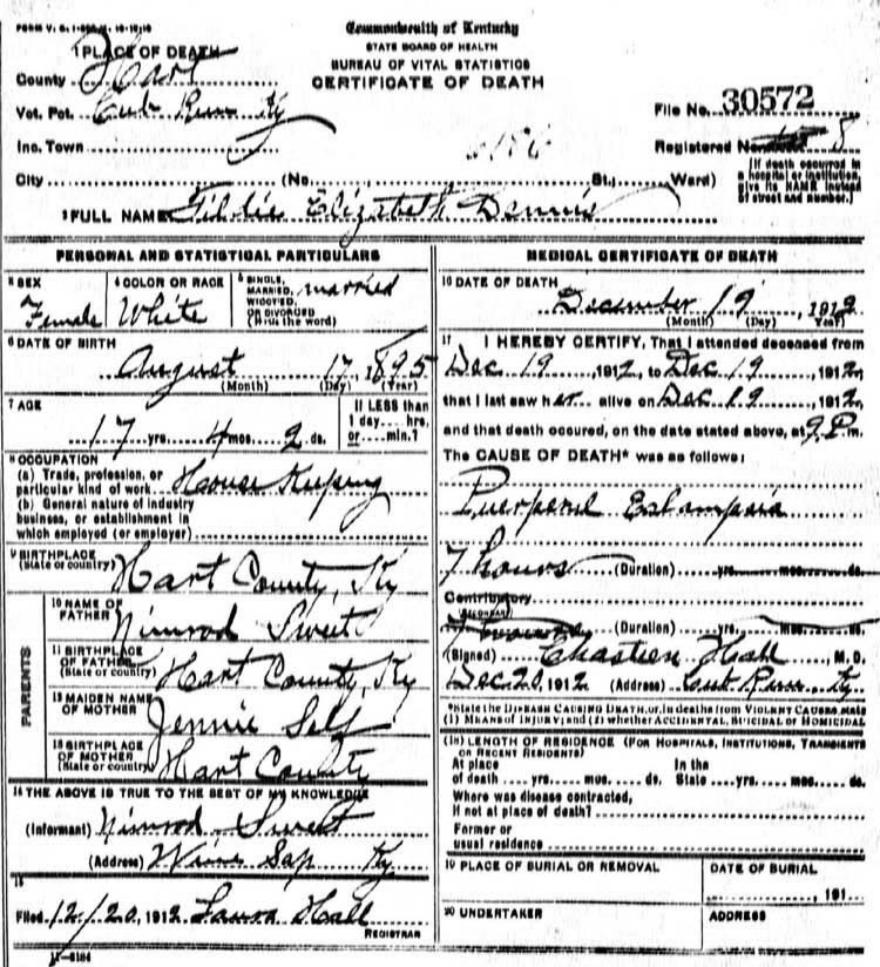 Commonwealth of Kentucky
STATE BOARD OF HEALTH
BUREAU OF VITAL STATISTICS
CERTIFICATE OF DEATH
1 PLACE OF DEATH
County Hart
Vot. Pct. Cub Run Ky
Inc. Town
City (No. , St., Ward)
File No. 30572
Registered No. 8
(If death occurred in
a hospital or institution,
give its NAME instead
of street and number.)
2 FULL NAME Tildie Elizabeth Dennis
PERSONAL AND STATISTICAL PARTICULARS
3 SEX Female
4 COLOR OR RACE White
5 SINGLE, MARRIED, WIDOWED, OR DIVORCED (Write the word) married
6 DATE OF BIRTH
August 17, 1895
(Month) (Day) (Year)
7 AGE
17 yrs. 4 mos. 2 ds.
If LESS than
1 day.... hrs.
or .... min.?
8 OCCUPATION
(a) Trade, profession, or
particular kind of work House Keeping
(b) General nature of industry
business, or establishment in
which employed (or employer)
9 BIRTHPLACE
(State or country) Hart County, Ky
PARENTS
10 NAME OF
FATHER Nimrod Sweet
11 BIRTHPLACE
OF FATHER
(State or country) Hart County, Ky
12 MAIDEN NAME
OF MOTHER Jennie Self
13 BIRTHPLACE
OF MOTHER
(State or country) Hart County
14 THE ABOVE IS TRUE TO THE BEST OF MY KNOWLEDGE
(Informant) Nimrod Sweet
(Address) Wine Sap Ky
15
Filed 12/20, 1912 Laura Hall
REGISTRAR
MEDICAL CERTIFICATE OF DEATH
16 DATE OF DEATH
December 19, 1912
(Month) (Day) Year)
17 I HEREBY CERTIFY, That I attended deceased from
Dec 19, 1912, to Dec 19, 1912,
that I last saw her alive on Dec 19, 1912,
and that death occured, on the date stated above, at 9 P.m.
The CAUSE OF DEATH* was as follows:
Puerperal Eclampsia
7 hours (Duration) yrs. mos. ds.
Contributory
(SECONDARY)
(Duration) yrs. mos. ds.
(Signed) Chastien Hall, M. D.
Dec 20, 1912 (Address) Cub Run Ky
*State the DISEASE CAUSING DEATH, or, in deaths from VIOLENT CAUSES, state
(1) MEANS of INJURY; and (2) whether ACCIDENTAL, SUICIDAL or HOMICIDAL
(18) LENGTH OF RESIDENCE (FOR HOSPITALS, INSTITUTIONS, TRANSIENTS
OR RECENT RESIDENTS)
At place In the
of death .... yrs. .... mos. .... ds. State .... yrs. .... mos. .... ds.
Where was disease contracted,
if not at place of death?
Former or
usual residence
19 PLACE OF BURIAL OR REMOVAL
DATE OF BURIAL
, 191
20 UNDERTAKER
ADDRESS
11-5184